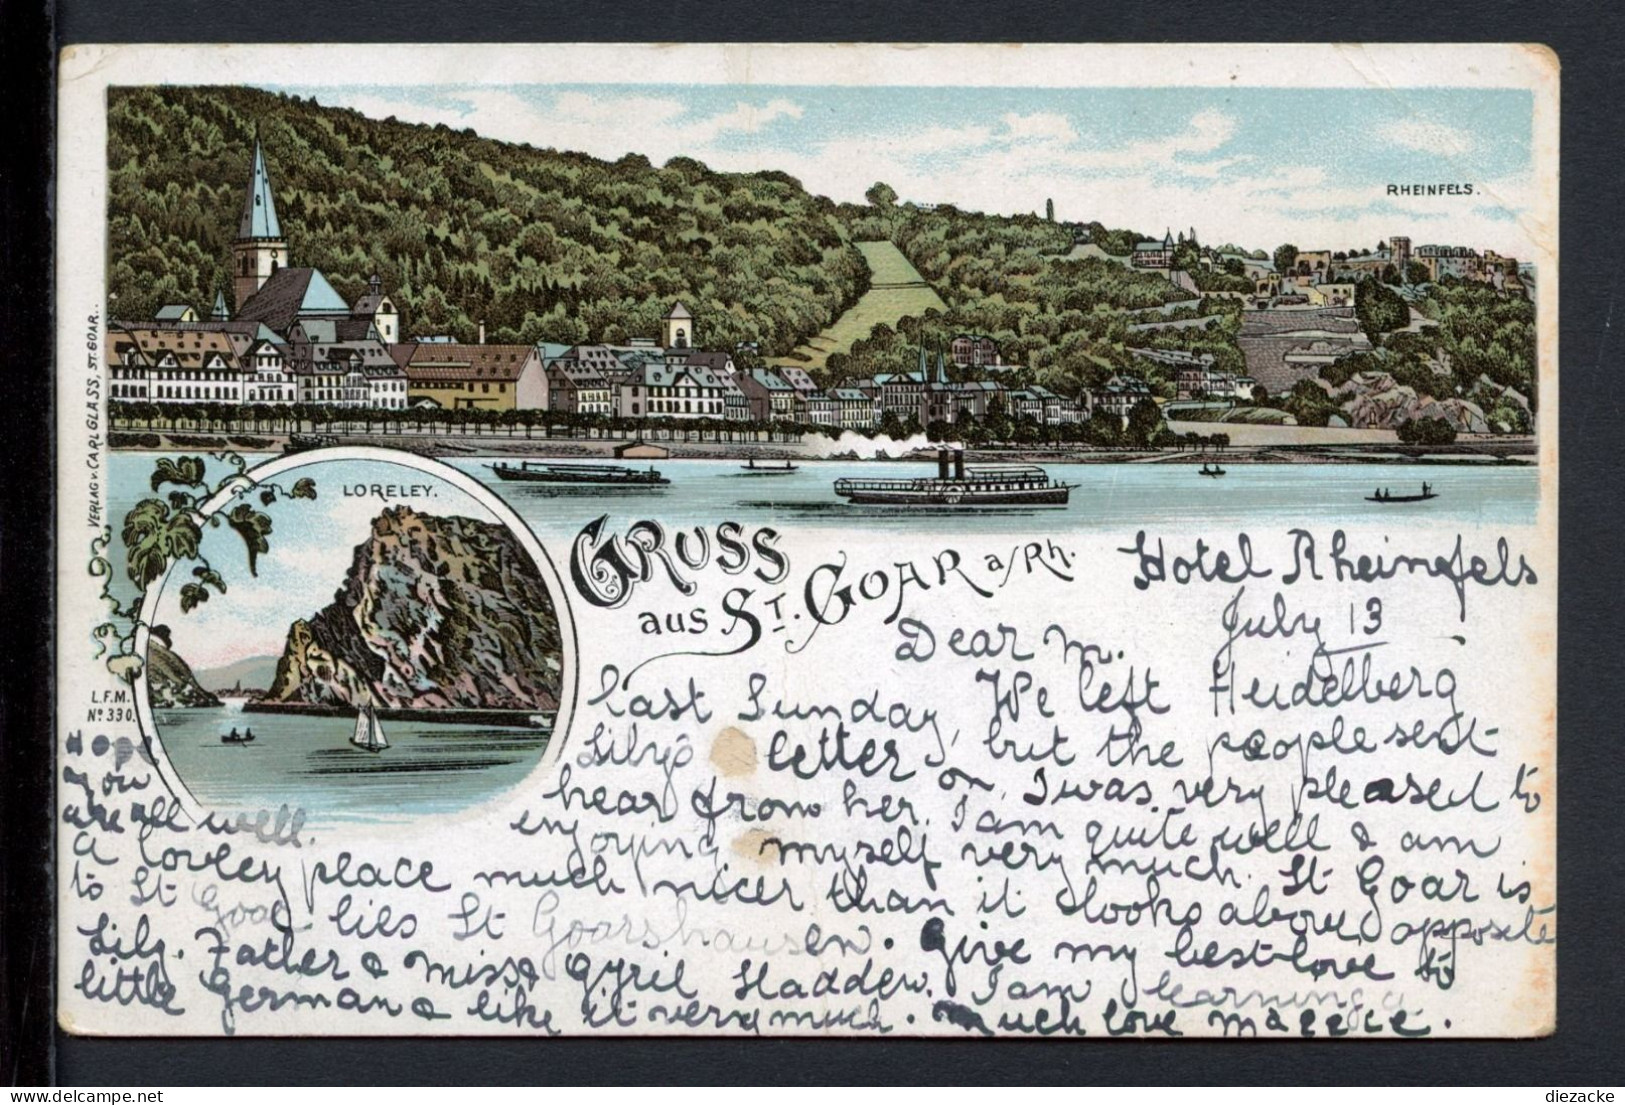 RHEINFELS.
VERLAG v. CARL GLASS, ST. GOAR..
LORELEY.
L.F.M.
No 330.
GRUSS
aus ST. GOAR a/Rh.
Hotel Rheinfels
July 13
Dear M.
We left Heidelberg
last Sunday, but the people sent
Lily's letter on, I was very pleased to
hear from her. I am quite well & am
enjoying myself very much. St Goar is
a lovley place much nicer than it looks above, opposite
to St Goar lies St Goarshausen. Give my best love to
Lily. Father & Miss Haddew. I am learning a
little German & like it very much. Much love
Hope
you
are all well.
diezacke